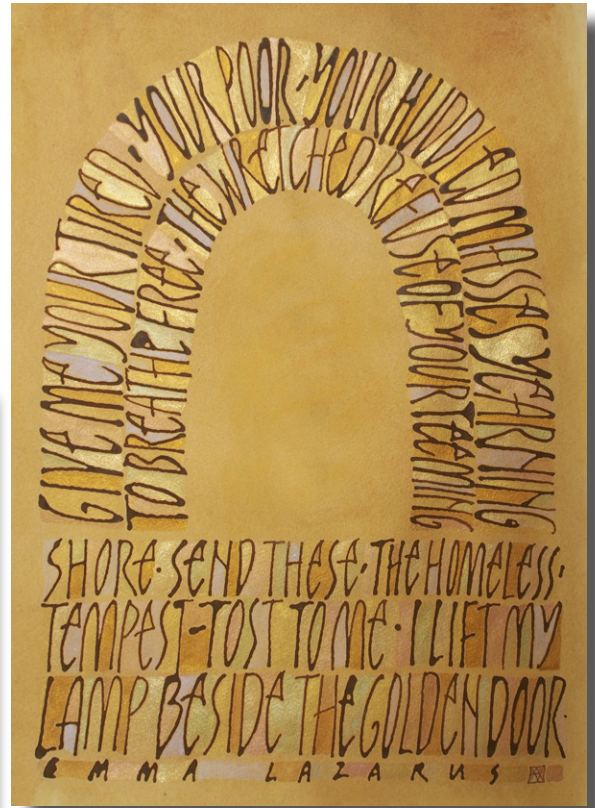 GIVE ME YOUR TIRED · YOUR POOR · YOUR HUDDLED MASSES YEARNING
TO BREATHE FREE · THE WRETCHED REFUSE OF YOUR TEEMING
SHORE · SEND THESE · THE HOMELESS ·
TEMPEST-TOST TO ME · I LIFT MY
LAMP BESIDE THE GOLDEN DOOR.
EMMA LAZARUS